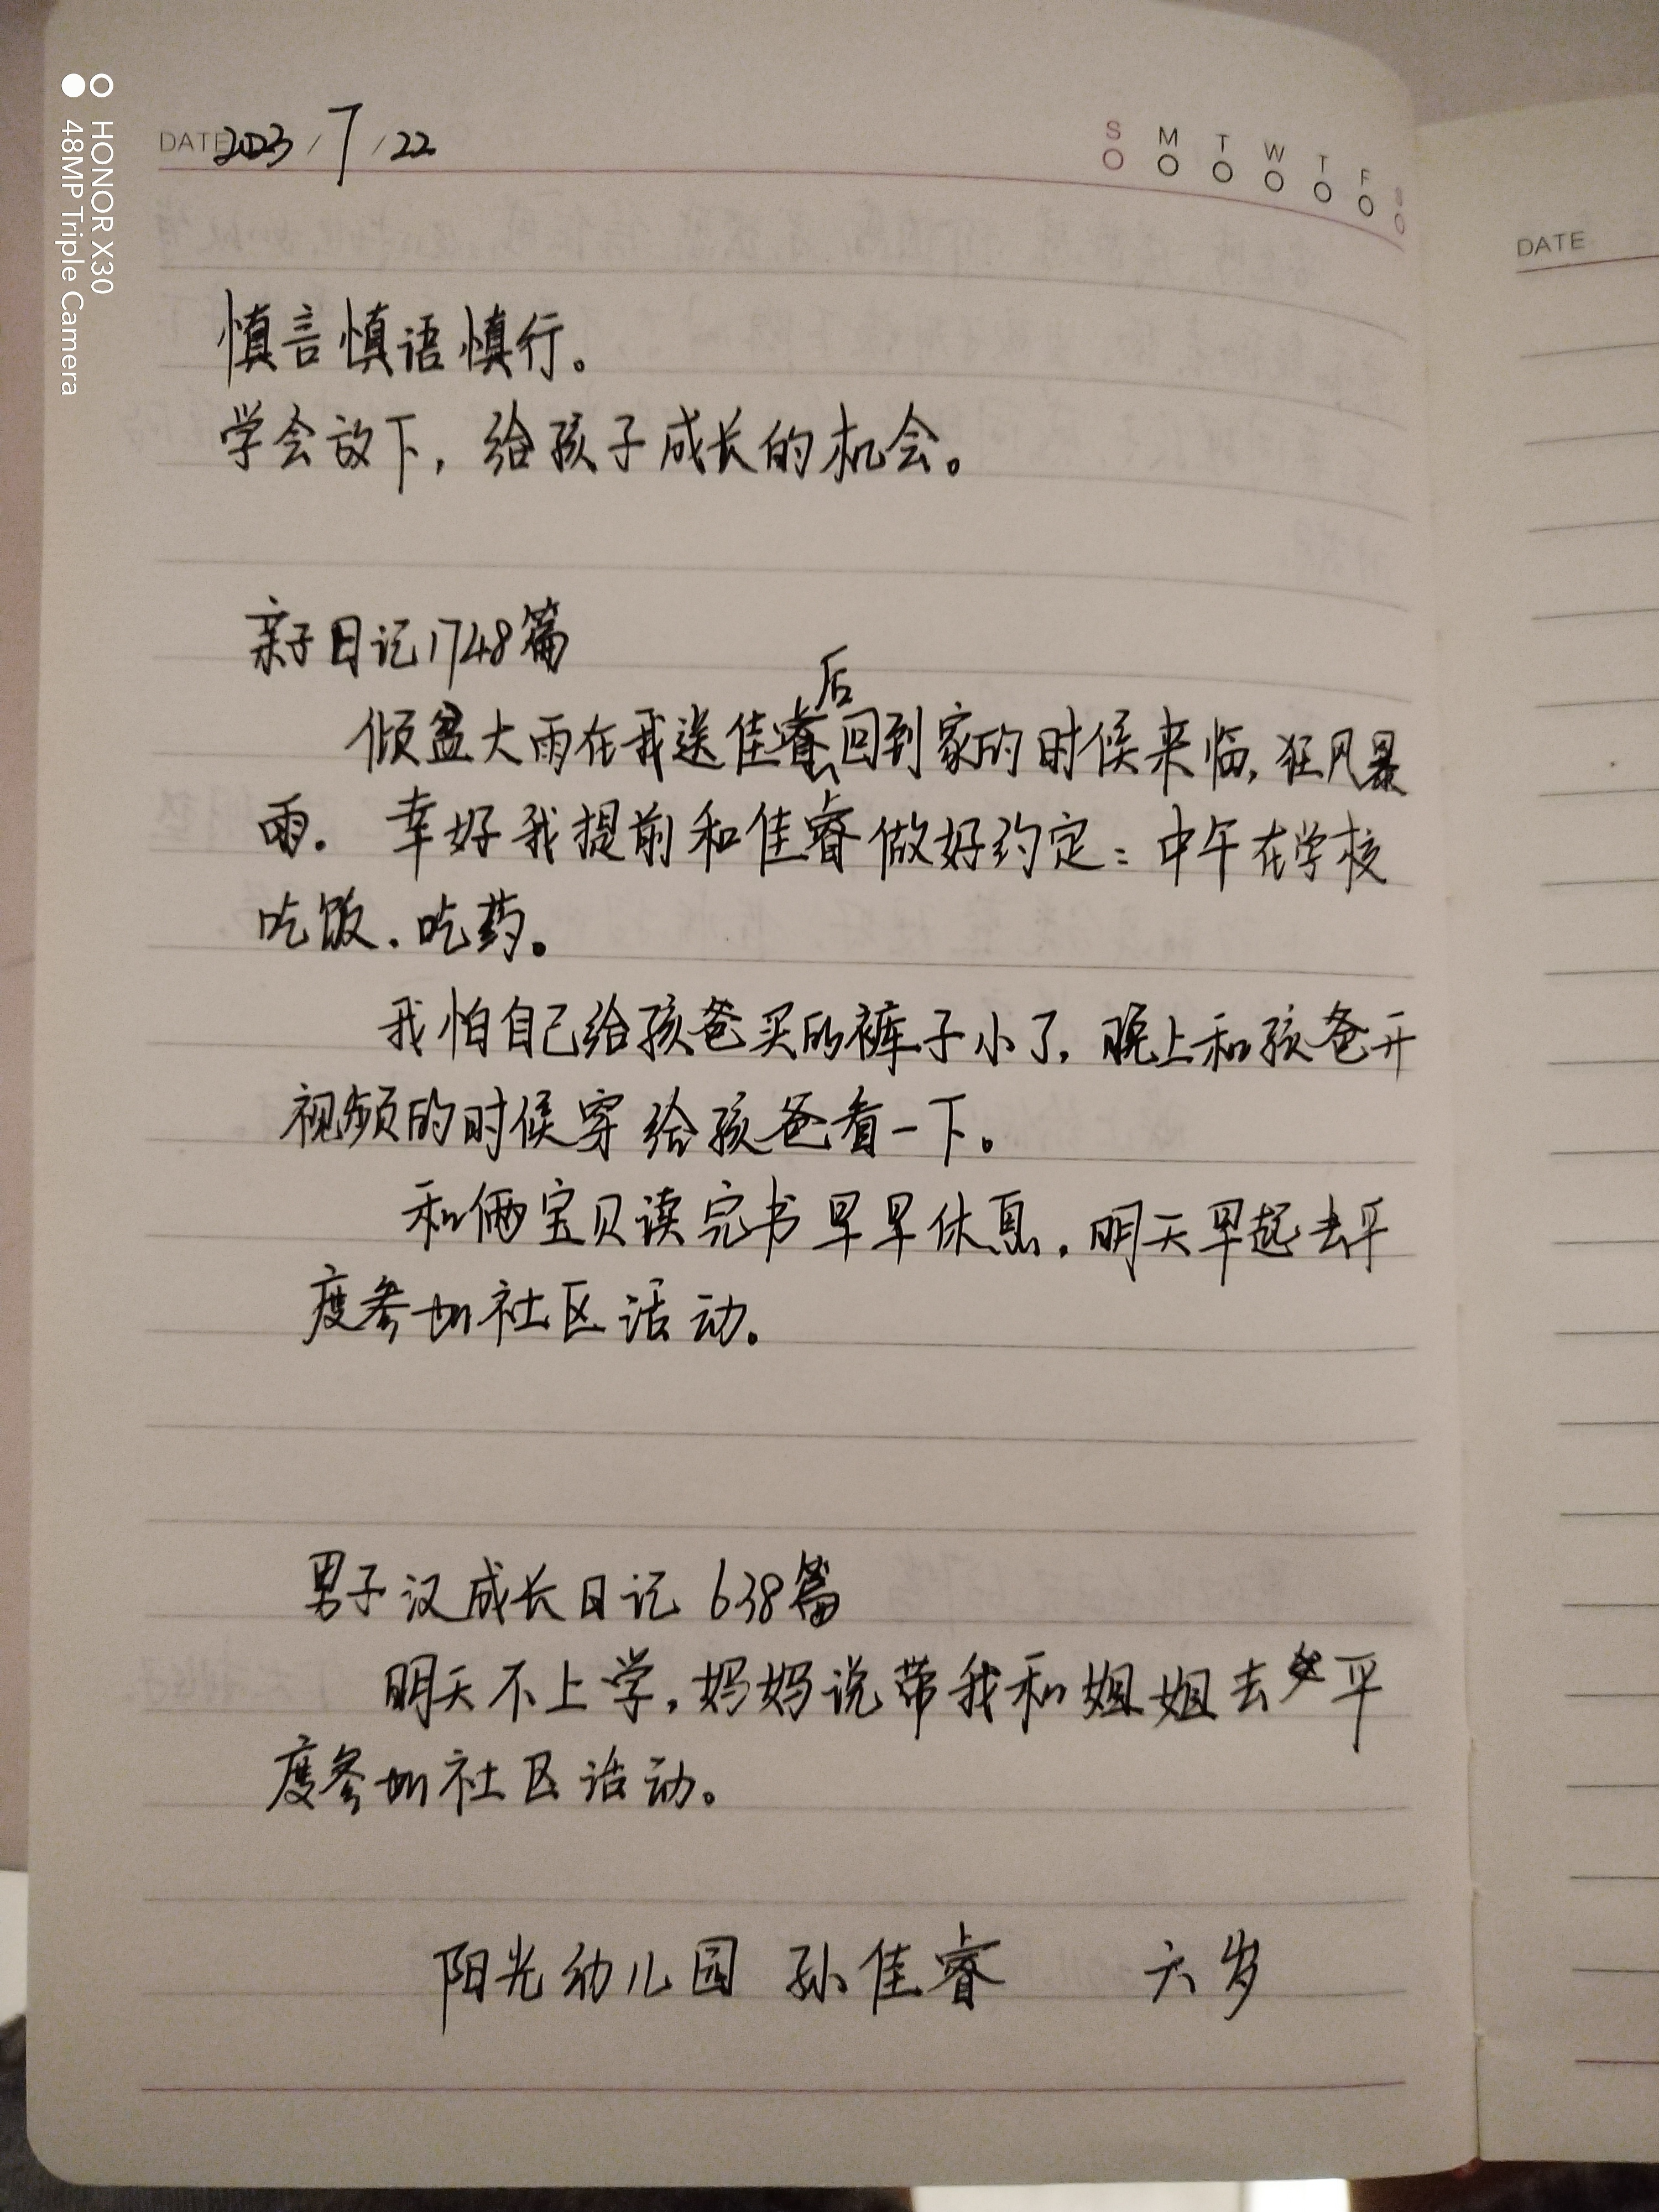 HONOR X30
48MP Triple Camera
DATE 2023/7/22
S M T W T F S
DATE
慎言慎语慎行。
学会放下，给孩子成长的机会。
亲子日记1748篇
倾盆大雨在我送佳睿后回到家的时候来临，狂风暴
雨。幸好我提前和佳睿做好约定：中午在学校
吃饭、吃药。
我怕自己给孩爸买的裤子小了，晚上和孩爸开
视频的时候穿给孩爸看一下。
和俩宝贝读完书早早休息，明天早起去平
度参加社区活动。
男子汉成长日记 638篇
明天不上学，妈妈说带我和姐姐去平
度参加社区活动。
阳光幼儿园 孙佳睿 六岁